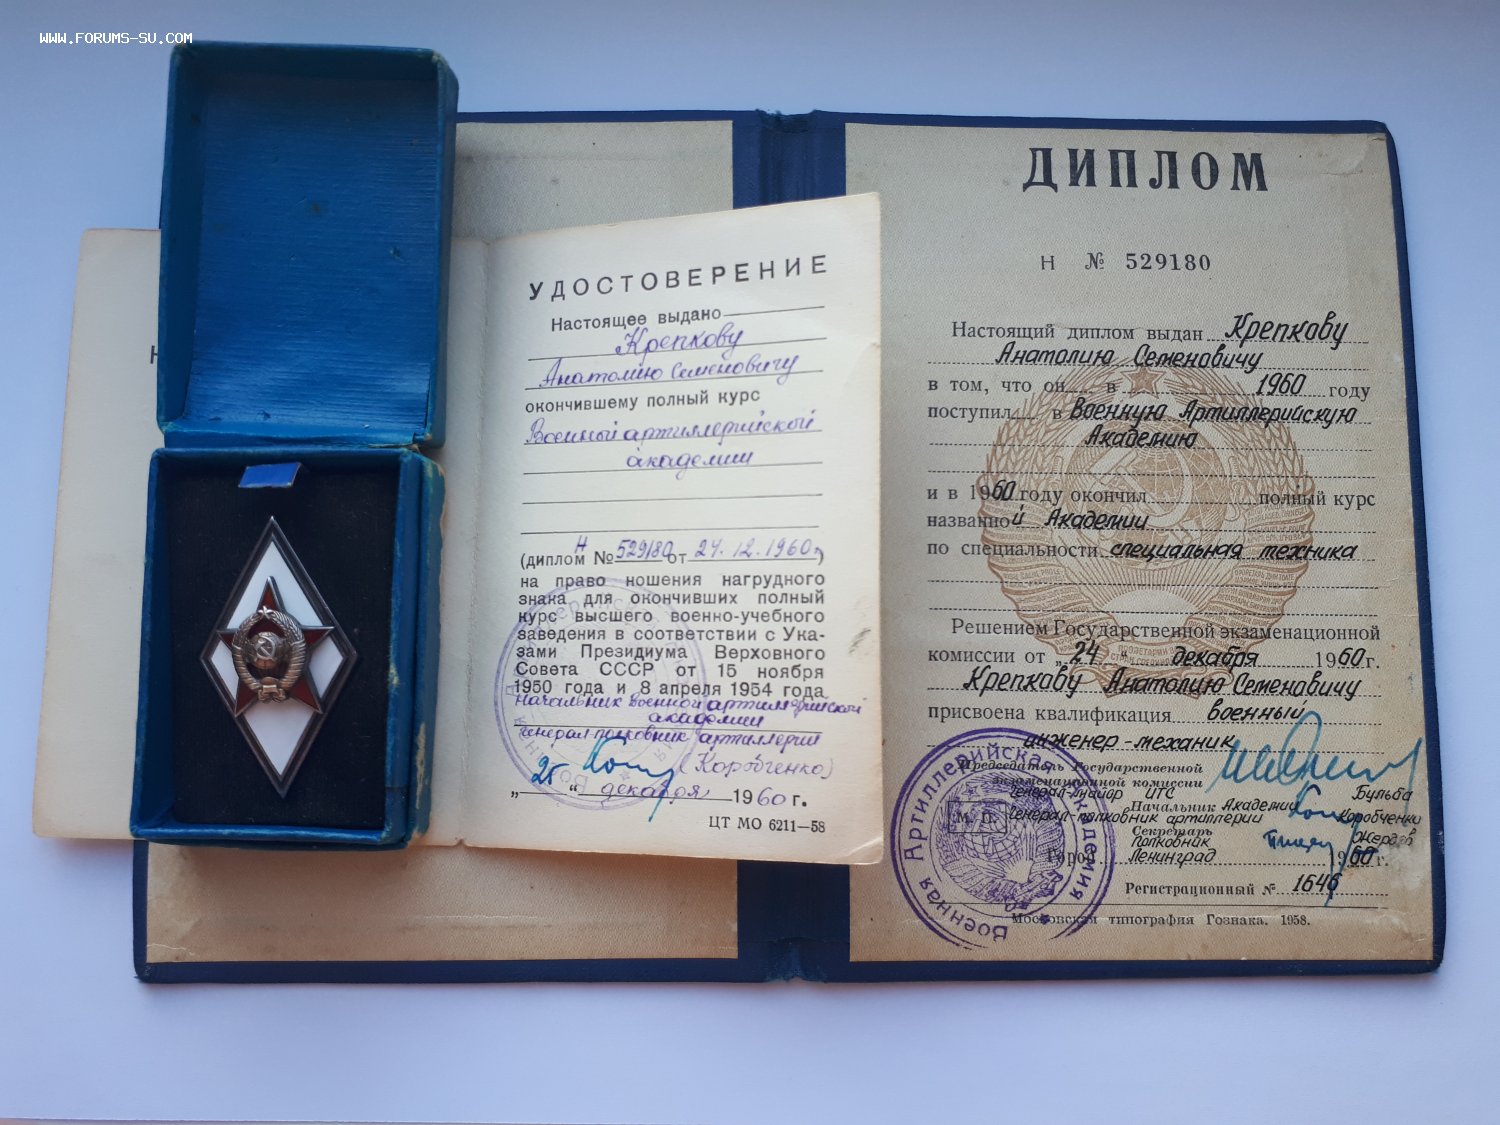 WWW.FORUMS-SU.COM
УДОСТОВЕРЕНИЕ
Настоящее выдано
Крепкову
Анатолию Семеновичу
окончившему полный курс
Военный артиллерийской
академии
(диплом № Н 529180 от 24.12.1960г.)
на право ношения нагрудного
знака для окончивших полный
курс высшего военно-учебного
заведения в соответствии с Ука-
зами Президиума Верховного
Совета СССР от 15 ноября
1950 года и 8 апреля 1954 года
Начальник Военной артиллерийской
академии
генерал-полковник артиллерии
(Коробченко)
„25“ декабря 1960 г.
ЦТ МО 6211—58
ДИПЛОМ
Н № 529180
Настоящий диплом выдан Крепкову
Анатолию Семеновичу
в том, что он в 1960 году
поступил в Военную Артиллерийскую
Академию
и в 1960 году окончил полный курс
названной Академии
по специальности специальная техника
Решением Государственной экзаменационной
комиссии от „24“ декабря 1960 г.
Крепкову Анатолию Семеновичу
присвоена квалификация военный
инженер-механик
Председатель Государственной
экзаменационной комиссии
Генерал-майор ИТС Бульба
Начальник Академии
Генерал-полковник артиллерии Коробченко
Секретарь
Полковник
М. П.
Город Ленинград 1960 г.
Регистрационный № 1646
Московская типография Гознака. 1958.
Военная Артиллерийская Академия